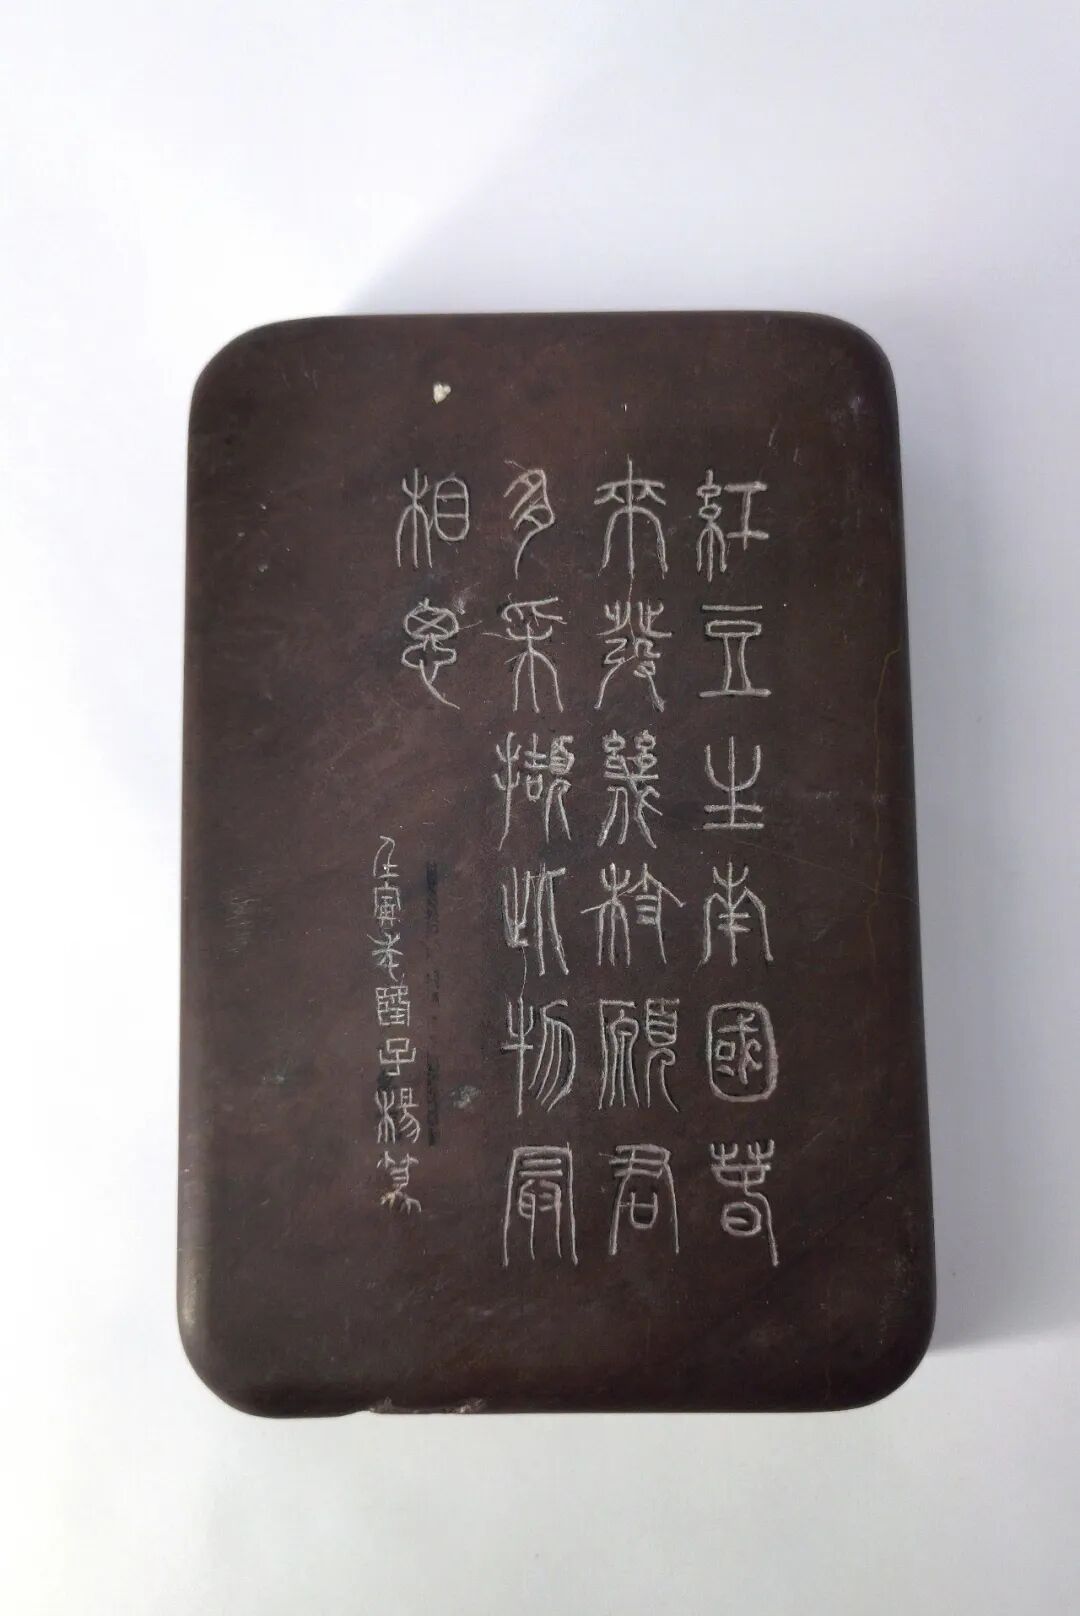 紅豆生南國春
來發幾枝願君
多采擷此物最
相思
壬寅子楊篆